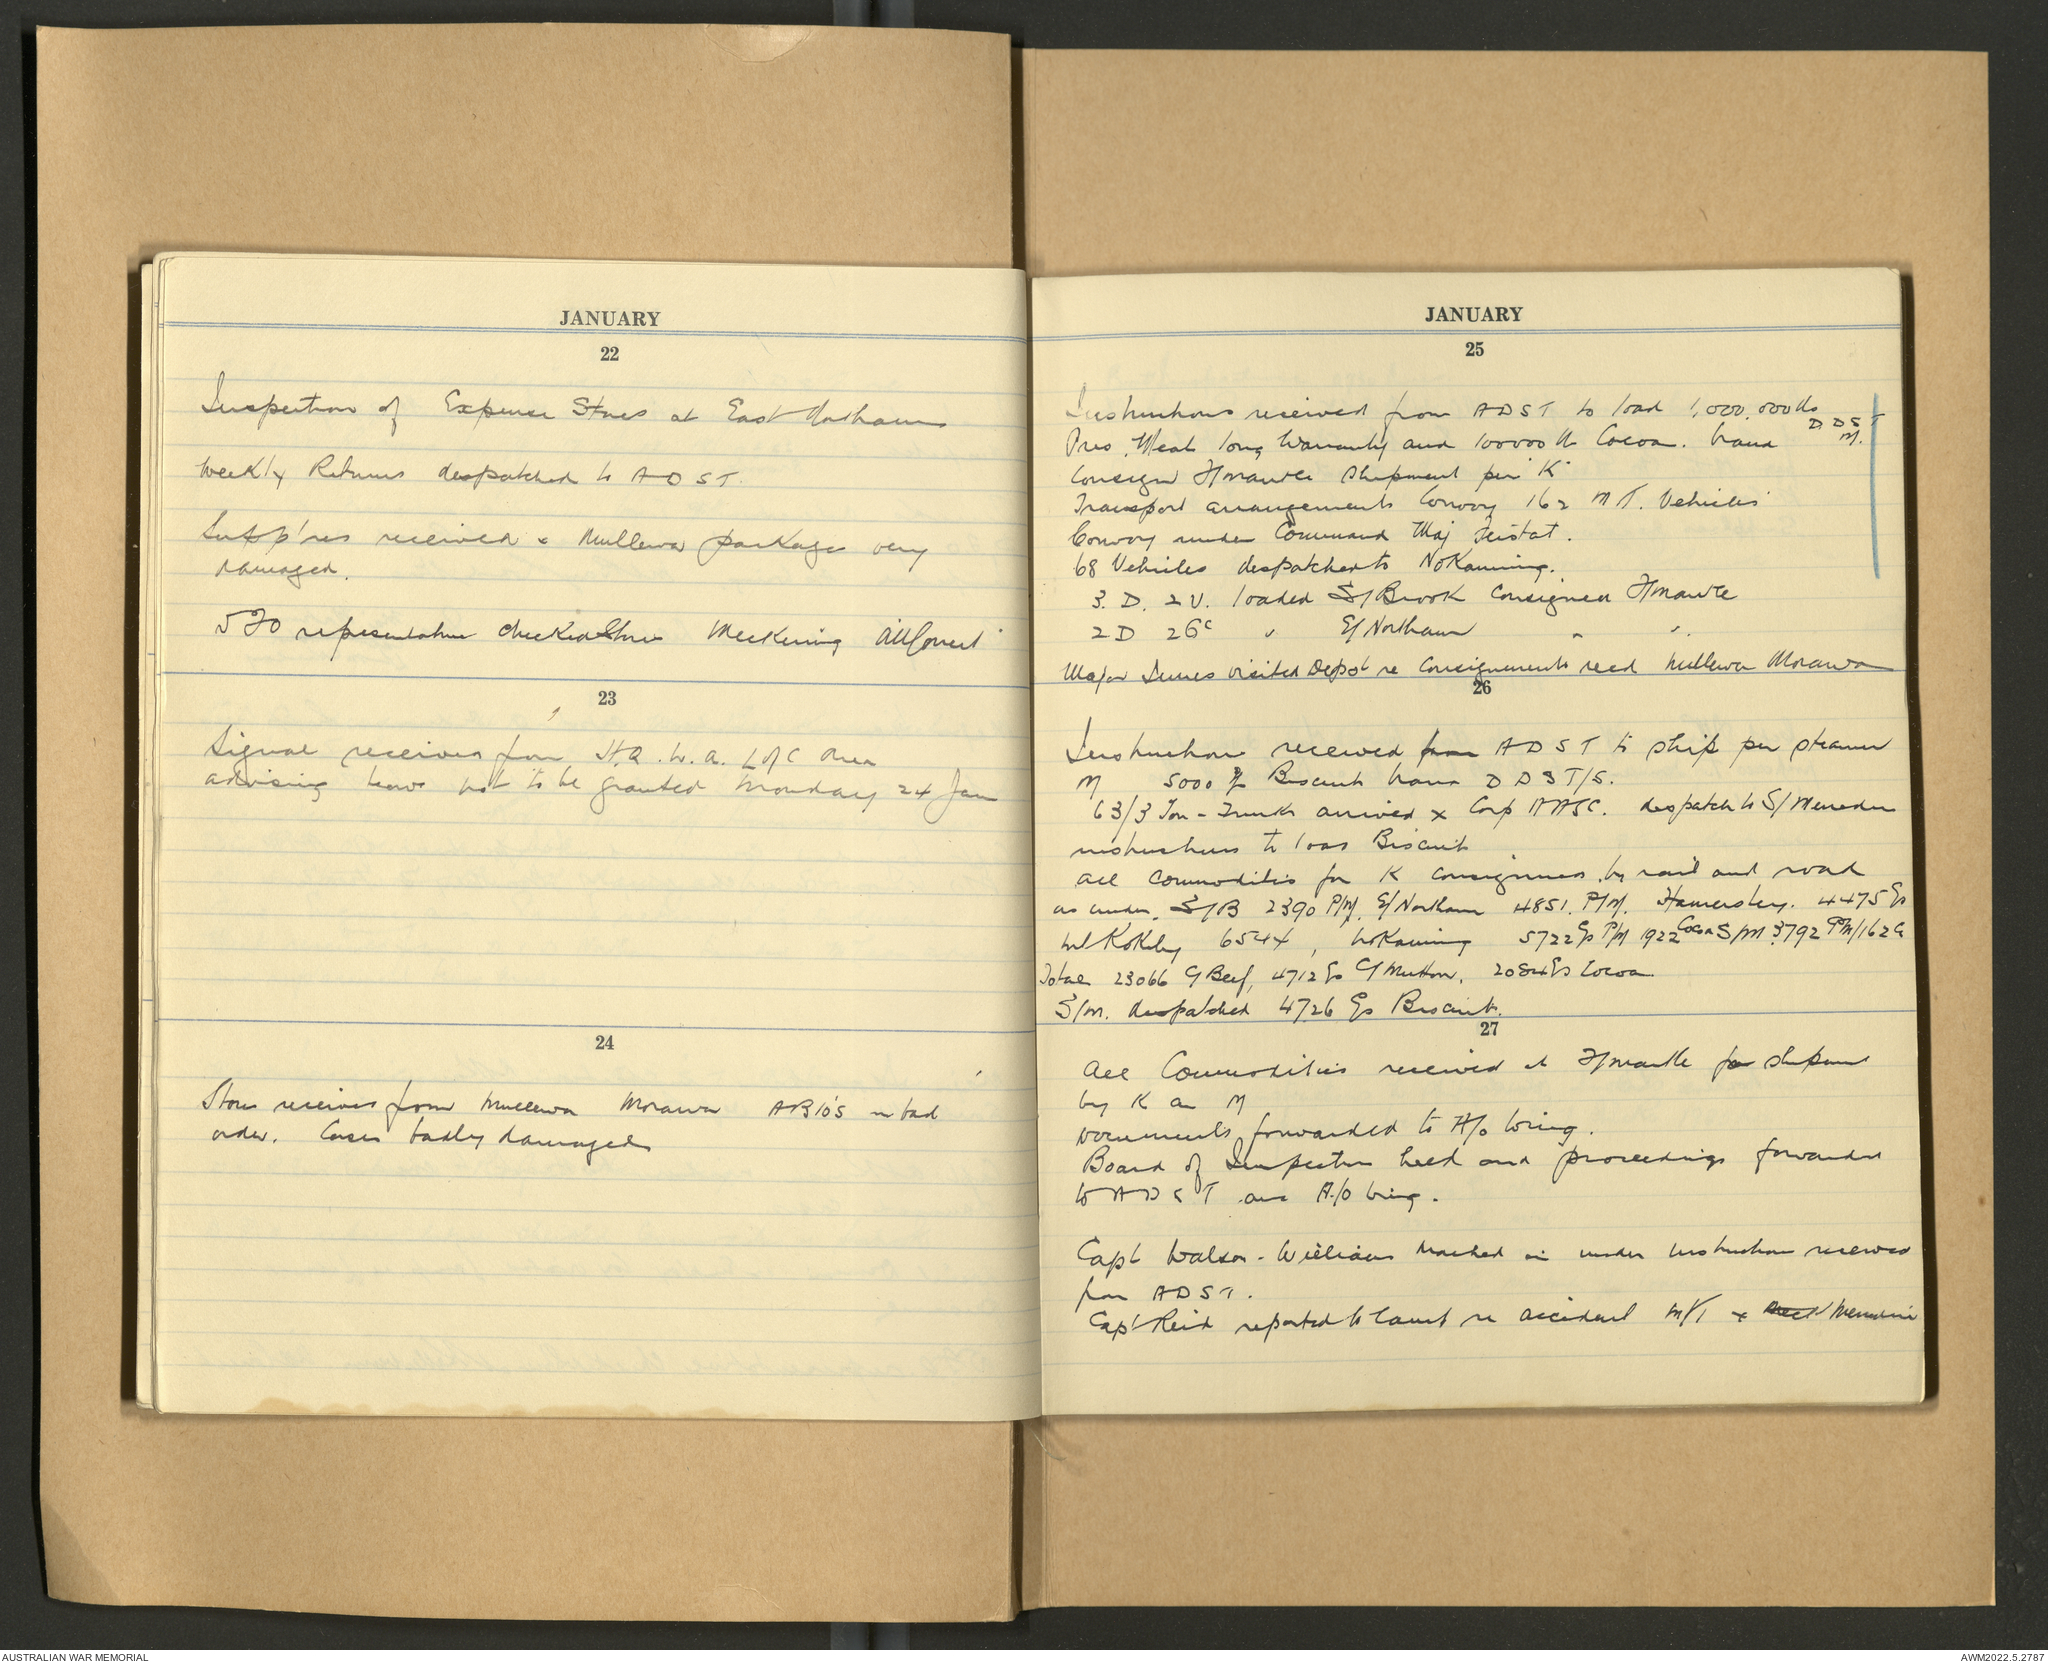 JANUARY
22
Inspection of Expense Stores at East Northam
Weekly Returns despatched to ADST.
Supp'res received x Mullewa package very
damaged.
5FO representative checked Store Meckering All Correct
23
Signal received from H.Q. W.A. L of C Area
advising leave not to be granted Monday 24 Jan
24
Stores received from Mullewa Morawa AB10's in bad
order. Cases badly damaged
JANUARY
25
Instructions received from ADST to load 1,000,000 lbs
Pres. Meat long Warranty and 100000 lb Cocoa. brand DDST
M.
Consign F/mantle shipment per "K"
Transport arrangements Convoy 162 MT. Vehicles
Convoy under Command Maj
68 Vehicles despatched to Nokaning.
3. D. 2 V. loaded S/Brook Consigned F/mantle
2 D 2 Gc " E/Northam " "
Major visited Depot re Consignments recd Mullewa Morawa
26
Instructions received from ADST to ship per steamer
M 5000 Biscuits brand DDST/S.
63/3 Ton - Trucks arrived x Corp AASC. despatch to S/Merredin
instructions to load Biscuits
All Commodities for K consigned by rail and road
as under. S/B 2390 P/M. E/Northam 4851. P/M. Hamersley. 4475 Cs
Mt Kokeby 6544, Nokaning 5722 Cs P/M 1922 Cocoa S/M 3792 PM/162 C
Total 23066 C/Beef, 4712 Cs C/Mutton. 2084 Cs Cocoa
S/M. despatched 4726 Cs Biscuits.
27
All Commodities received at F/mantle for shipment
by K and M
Documents forwarded to A/o
Board of Inspection held and proceedings forwarded
to ADST and A/o
Capt Watson-Williams marched in under instruction received
from ADST.
Capt Reid reported to Court re accident M/T x Merredin
AUSTRALIAN WAR MEMORIAL
AWM2022.5.2787